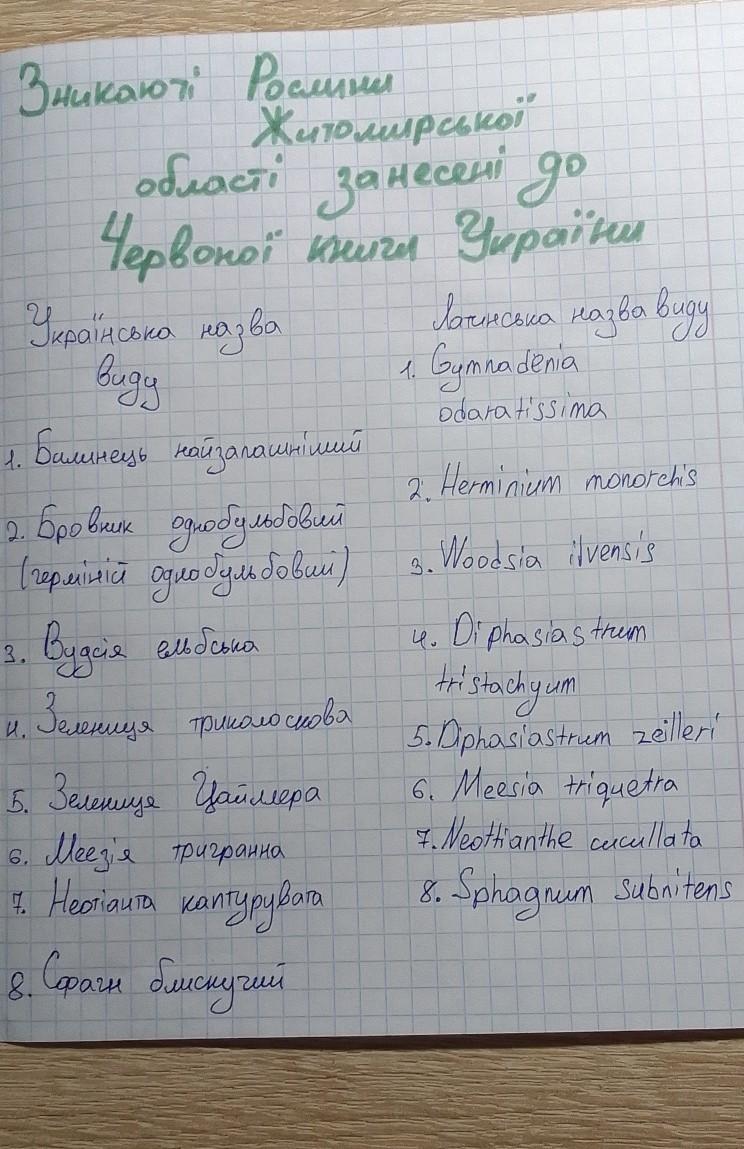 Зникаючі Рослини
Житомирської
області занесені до
Червоної книги України
Українська назва
виду
1. Билинець найзапашніший
2. Бровник однобульбовий
(герміній однобульбовий)
3. Вудсія ельбська
4. Зелениця триколоскова
5. Зелениця Цайллера
6. Меезія тригранна
7. Неотіанта каптурувата
8. Сфагн блискучий
Латинська назва виду
1. Gymnadenia
odaratissima
2. Herminium monorchis
3. Woodsia ilvensis
4. Diphasiastrum
tristachyum
5. Diphasiastrum zeilleri
6. Meesia triquetra
7. Neottianthe cucullata
8. Sphagnum subnitens